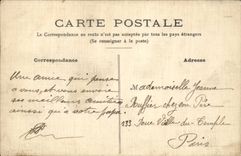 CARTE POSTALE
La Correspondance au recto n'est pas acceptée par tous les pays étrangers
(Se renseigner à la poste)
Correspondance
Adresse
Une amie qui pense
à vous, et vous envoie
ses meilleures amitiés
aussi qu'à votre papa
Mademoiselle Jeanne
chez son Père
133 du Temple
Paris